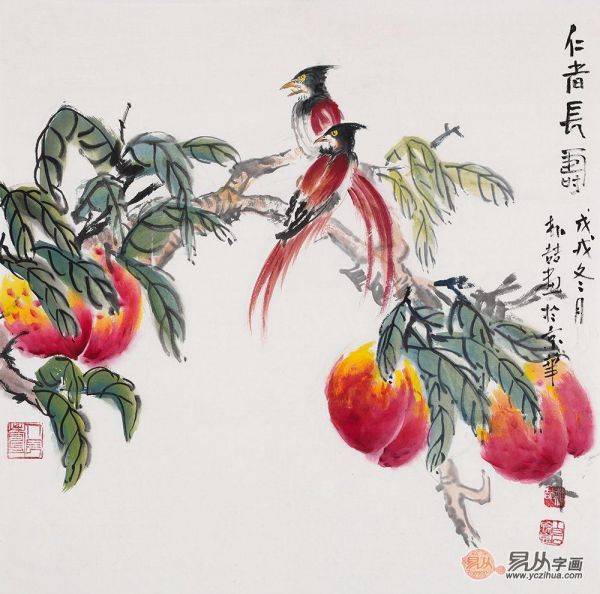 仁者長壽
戊戌冬月
喆画於京華
易从字画
www.yczihua.com